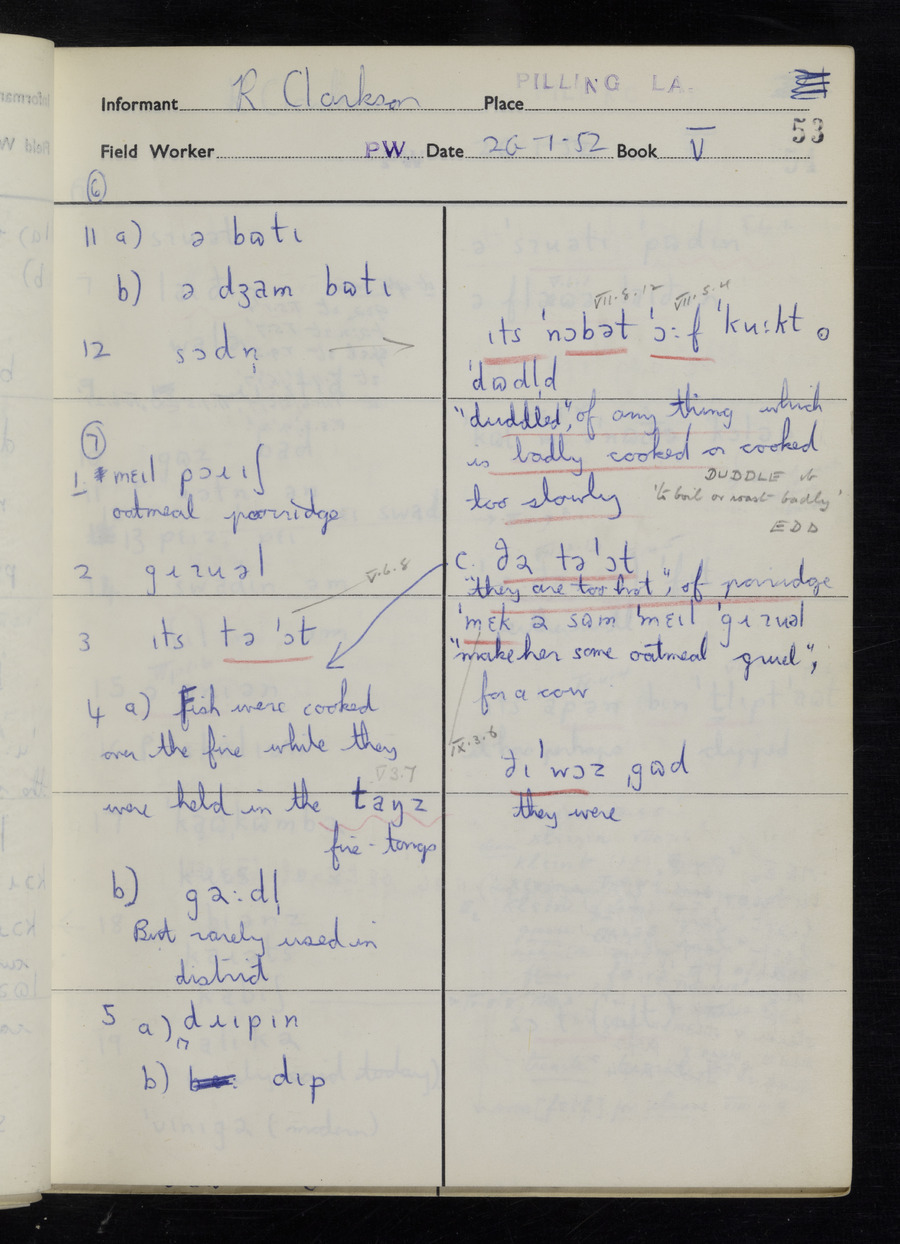 Informant R Clarkson Place PILLING LA.
53
Field Worker P.W. Date 26-1-52 Book V
6
11 a) ə bɷtɩ
b) ə dʒam bɷtɩ
12 sɔdn̩ →
7
1 mɛɩl pɔɹɩʃ
oatmeal porridge
2 gɹɩuəl
V.6.8
3 ɩts tə ˈɔt
4 a) Fish were cooked
over the fire while they
V3.7
were held in the taŋz
fire-tongs
b) gəːdl̩
But rarely used in
district
5 a) dɹɩpɩn
b) dɩp
VII.8.12 VII.5.4
ɩts ˈnɔbət ˈɔːf ˈkuːkt o
ˈdɷdl̩d
"duddled", of any thing which
is badly cooked or cooked
too slowly
DUDDLE vb
'to boil or roast badly'
EDD
c. ðə tə ˈɔt
"they are too hot", of porridge
ˈmɛk ə sɷm ˈmɛɩl ˈgɹɩuəl
"make her some oatmeal gruel",
for a cow
IX.3.6
ðɩ ˈwɔz ˌgɷd
they were